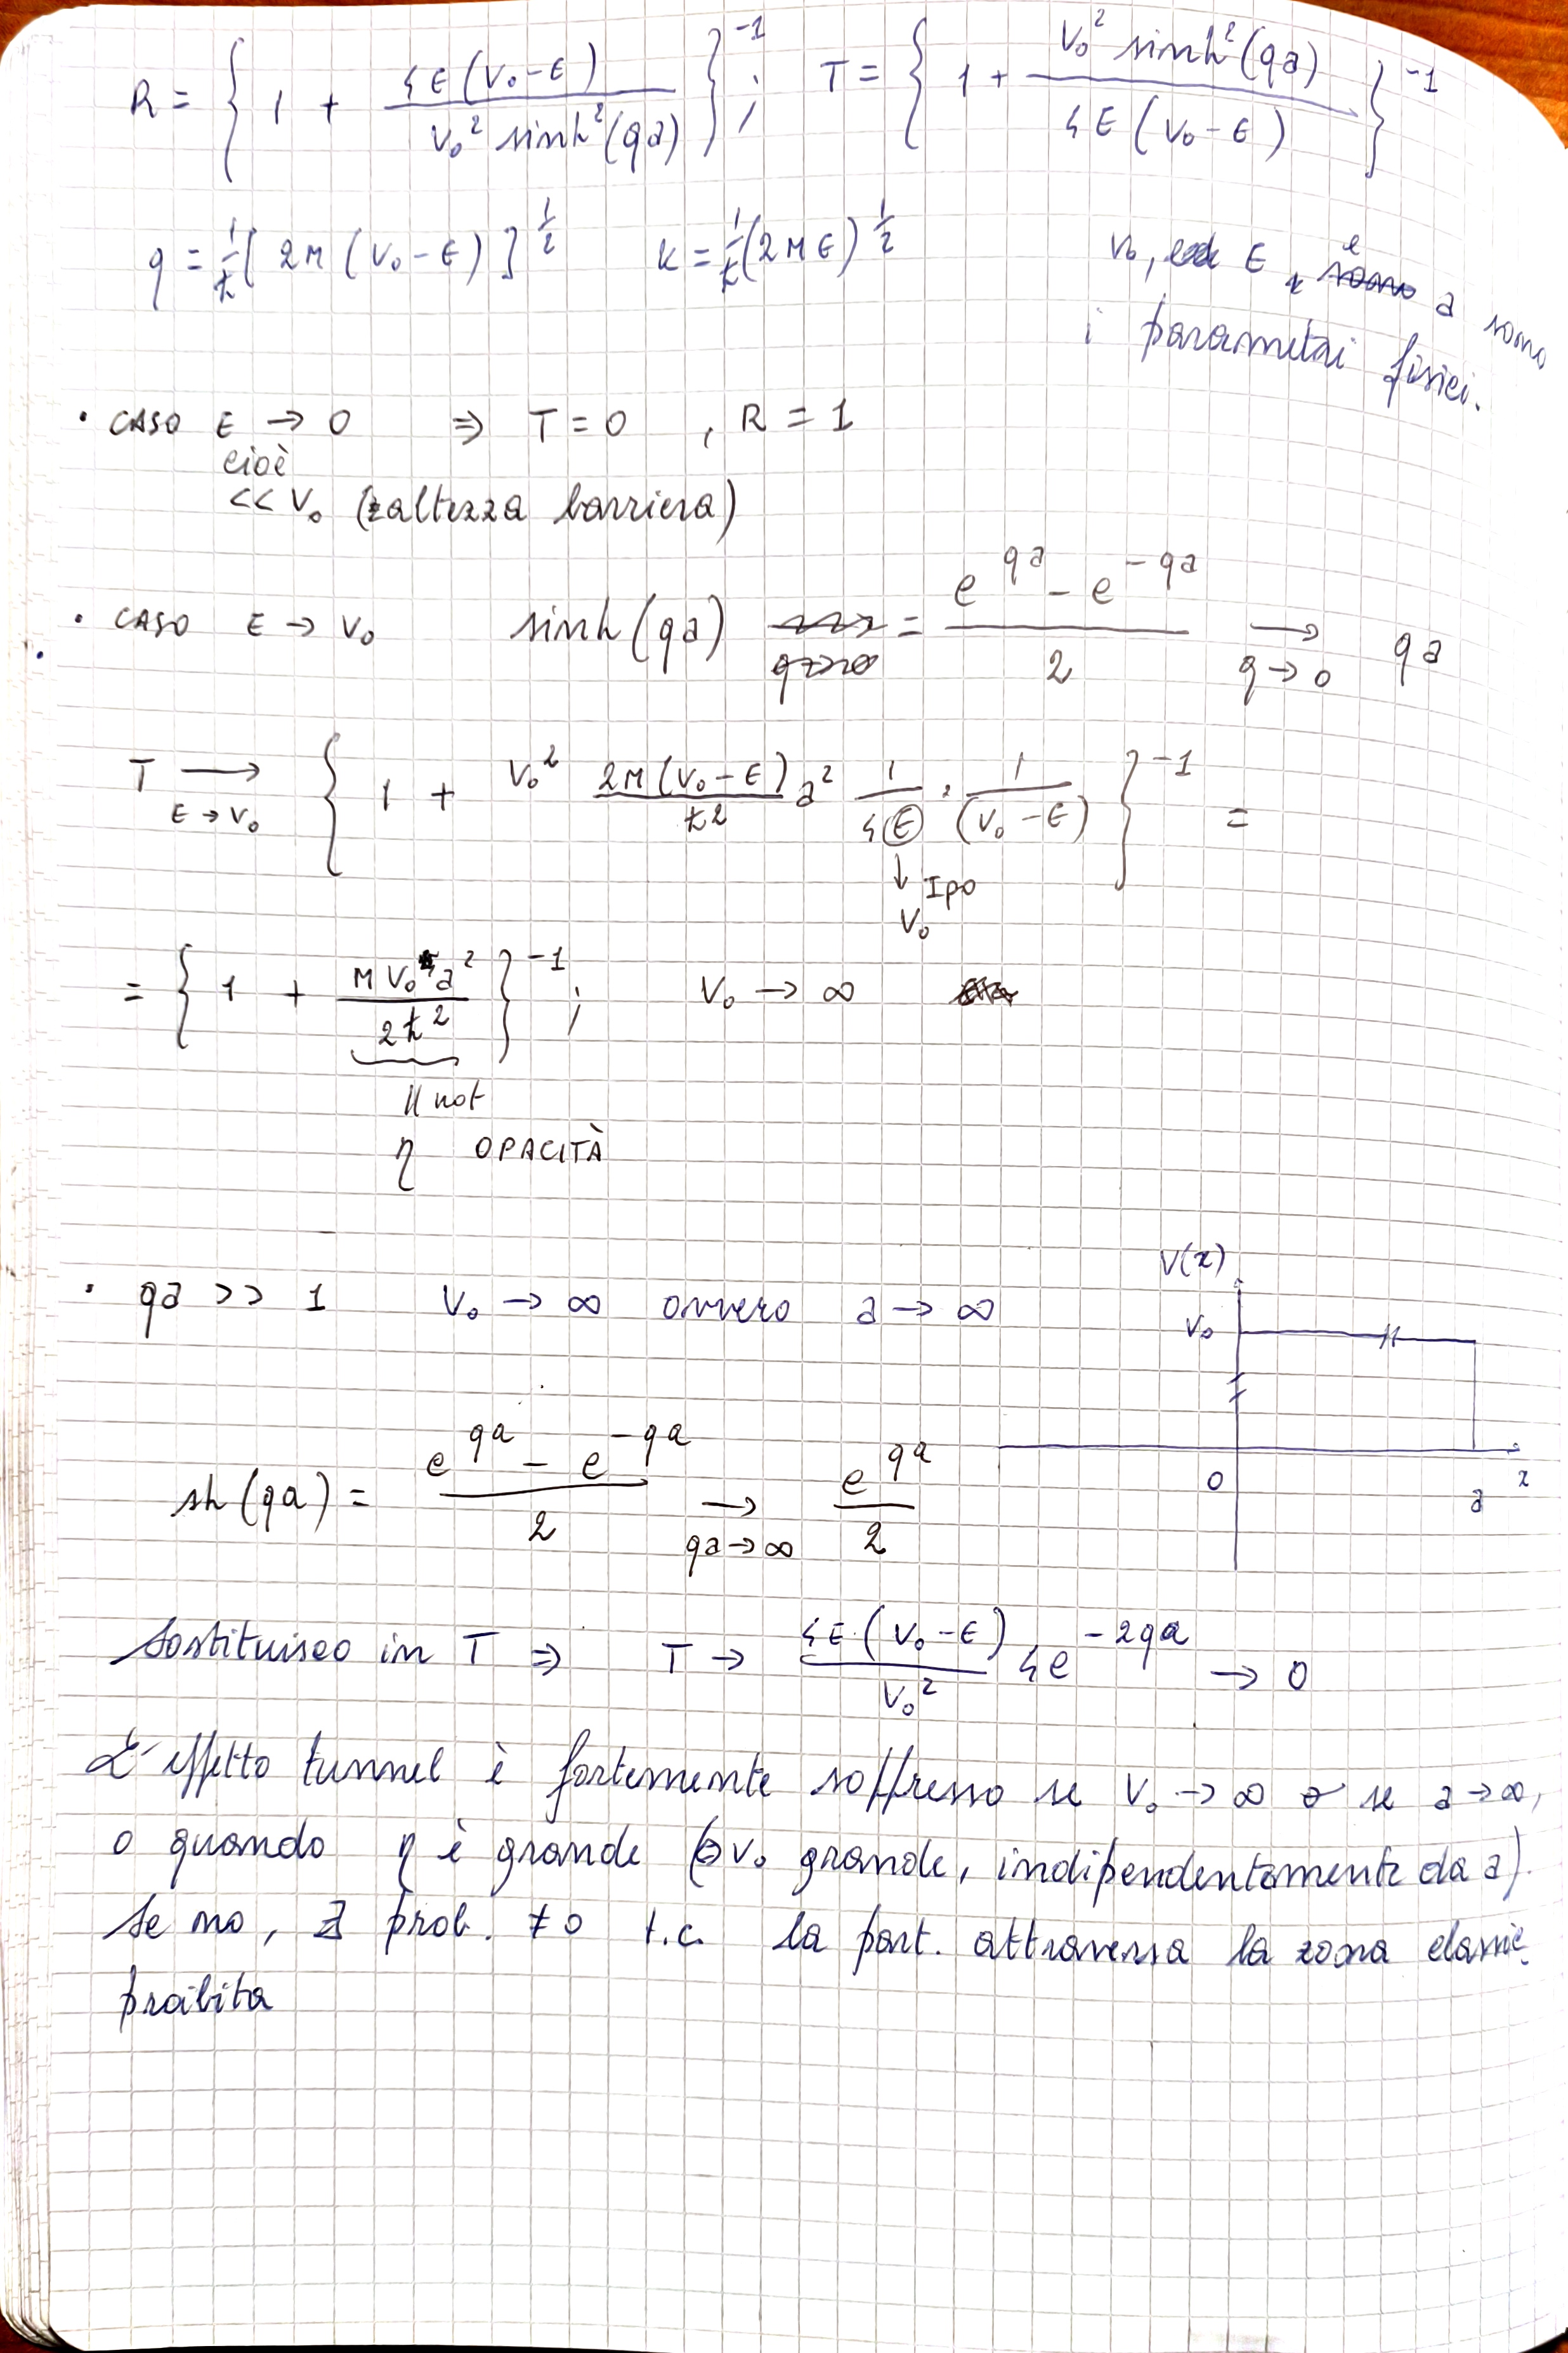 R = { 1 + 4E(V₀-E) / V₀² sinh²(qa) }⁻¹ ; T = { 1 + V₀² sinh²(qa) / 4E(V₀-E) }⁻¹
q = 1/ħ [2M(V₀-E)]^½ k = 1/ħ (2ME)^½ V₀, E e a sono
i parametri fisici.
• CASO E → 0 ⇒ T = 0 , R = 1
cioè
<< V₀ (altezza barriera)
• CASO E → V₀ sinh(qa) = (e^{qa} - e^{-qa}) / 2 → q→0 qa
T → E→V₀ { 1 + V₀² 2M(V₀-E)/ħ² a² 1/4E · 1/(V₀-E) }⁻¹ =
↓ Ipo
V₀
= { 1 + M V₀ a² / 2ħ² }⁻¹ ; V₀ → ∞
|| not
η OPACITÀ
• qa >> 1 V₀ → ∞ ovvero a → ∞
V(x)
V₀
0 a x
sh(qa) = (e^{qa} - e^{-qa}) / 2 → qa→∞ e^{qa} / 2
Sostituisco in T ⇒ T → 4E·(V₀-E) / V₀² 4e^{-2qa} → 0
L'effetto tunnel è fortemente soppresso se V₀ → ∞ o se a → ∞,
o quando η è grande (V₀ grande, indipendentemente da a).
Se no, ∃ prob. ≠ 0 t.c. la part. attraversa la zona classic.
proibita